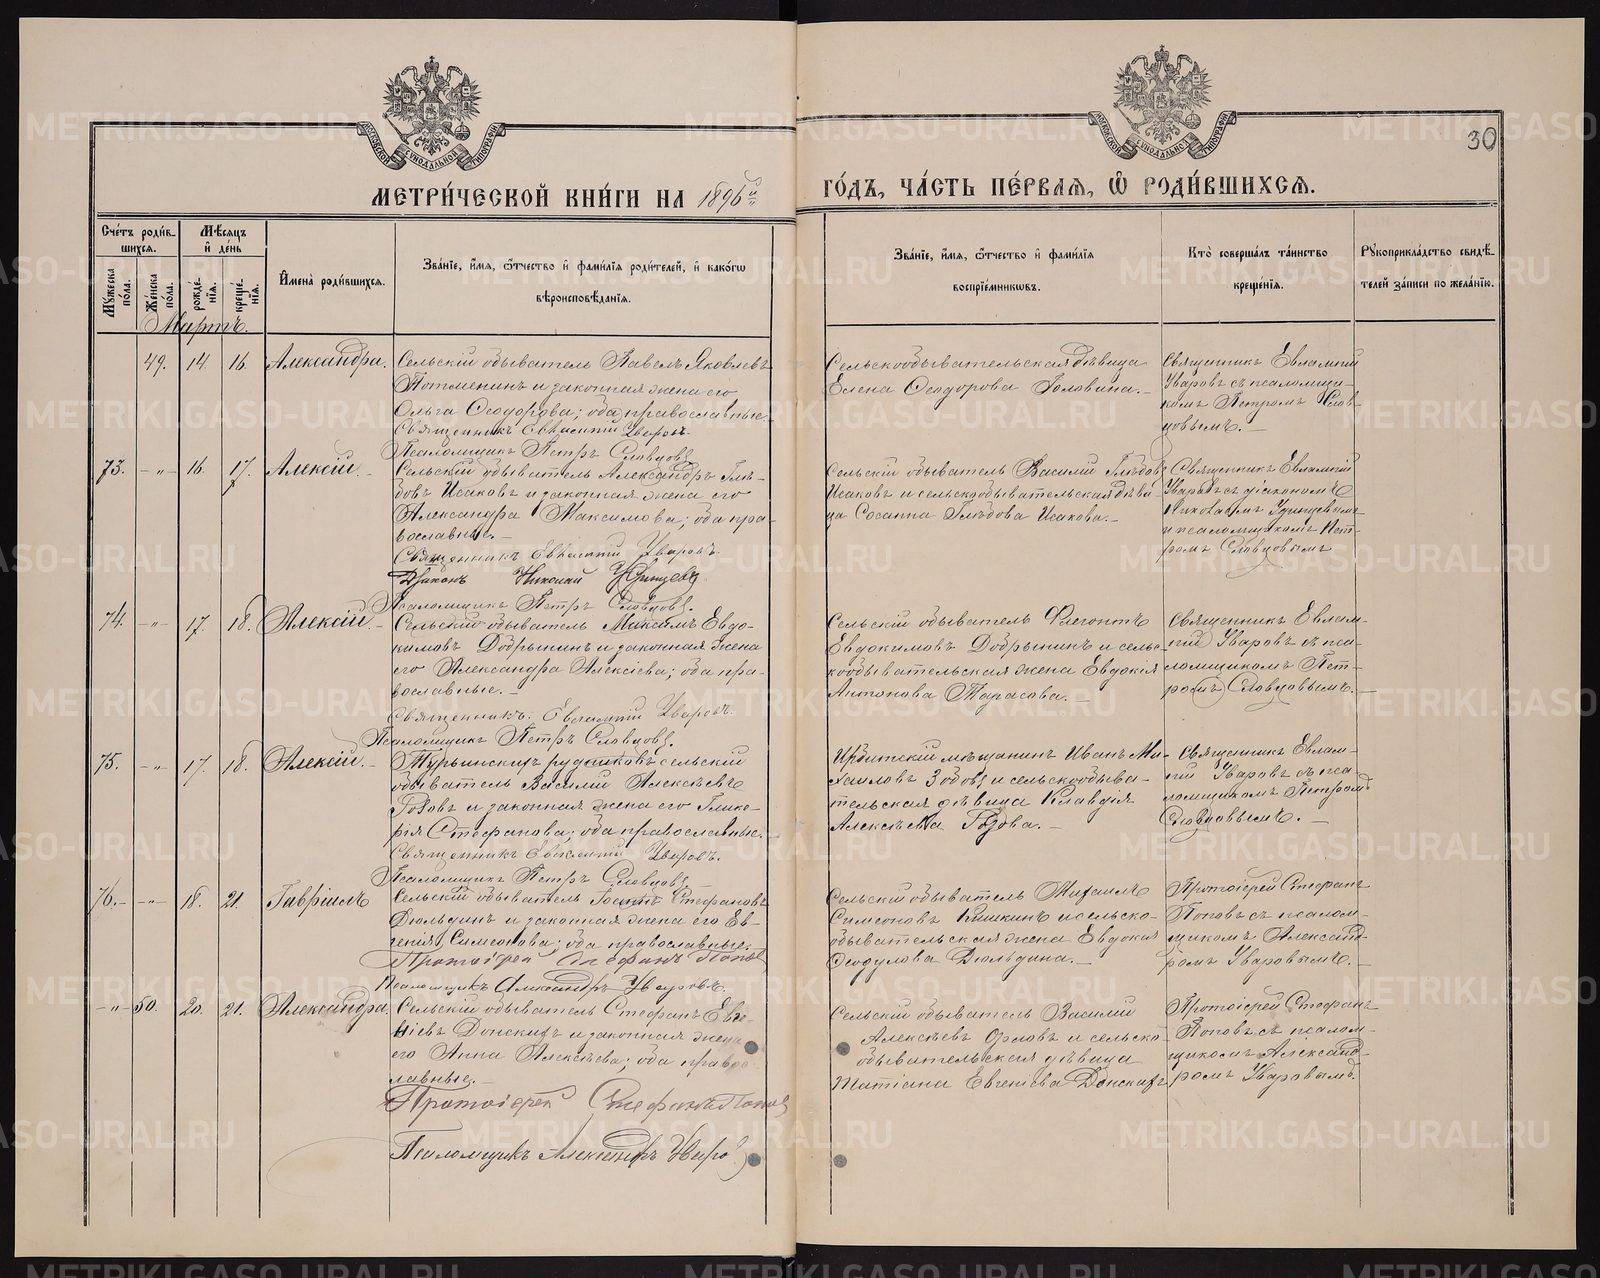 30
МОСКОВСКОЙ СѴНОДАЛЬНОЙ ТИПОГРАФІИ
МОСКОВСКОЙ СѴНОДАЛЬНОЙ ТИПОГРАФІИ
МЕТРИ́ЧЕСКОЙ КНИ́ГИ НА 1896й
ГО́ДЪ, ЧА́СТЬ ПЕ́РВАЯ, Ѡ РОДИ́ВШИХСЯ.
Сче́тъ роди́в-
шихся.
Мѣсяцъ
и де́нь
Мꙋжеска по́ла.
Же́нска по́ла.
рожде́-нїя.
креще́-нїя.
Имена̀ роди́вшихся.
Зва́нїе, и́мя, ѻ҆́тчество и фами́лїя роди́телей, и како́гѡ
вѣроисповѣ́данїя.
Зва́нїе, и́мя, ѻ҆́тчество и фами́лїя
воспрїе́мникѡвъ.
Кто̀ соверша́лъ та́инство
креще́нїя.
Рꙋкоприкла́дство свидѣ́-
телей за́писи по жела́нїю.
Мартъ.
49. 14. 16. Александра.
Сельскій обыватель Павелъ Яковлевъ
Потменинъ и законная жена его
Ольга Ѳеодорова; оба православные.
Священникъ Евлампій Уваровъ.
Псаломщикъ Петръ Словцовъ
Сельскообывательская дѣвица
Елена Ѳеодорова Головина.—
Священникъ Евлампій
Уваровъ съ псаломщи-
комъ Петромъ Слов-
цовымъ.—
73. —"— 16. 17. Алексій.—
Сельскій обыватель Александръ Глѣ-
бовъ Исаковъ и законная жена его
Александра Максимова; оба пра-
вославные.—
Священникъ Евлампій Уваровъ.
Діаконъ Николай
Псаломщикъ Петръ Словцовъ.
Сельскій обыватель Василій Глѣбовъ
Исаковъ и сельскообывательская дѣви-
ца Сосанна Глѣбова Исакова.—
Священникъ Евлампій
Уваровъ съ діакономъ
Николаемъ
и псаломщикомъ Пет-
ромъ Словцовымъ
74. —"— 17. 18. Алексій.—
Сельскій обыватель Максимъ Евдо-
кимовъ Добрынинъ и законная жена
его Александра Алексіева; оба пра-
вославные.—
Священникъ Евлампій Уваровъ.
Псаломщикъ Петръ Словцовъ.
Сельскій обыватель Флегонтъ
Евдокимовъ Добрынинъ и сельс-
кообывательская жена Евдокія
Антонова Тарасова.—
Священникъ Евлам-
пій Уваровъ съ пса-
ломщикомъ Пет-
ромъ Словцовымъ.—
75. —"— 17. 18. Алексій.—
Турьинскихъ рудниковъ сельскій
обыватель Василій Алексѣевъ
и законная жена его Глике-
рія Стефанова; оба православные.—
Священникъ Евлампій Уваровъ.
Псаломщикъ Петръ Словцовъ
Ирбитскій мѣщанинъ Иванъ Ми-
хаиловъ и сельскообыва-
тельская дѣвица Клавдія
Алексѣева
Священникъ Евлам-
пій Уваровъ съ пса-
ломщикомъ Петромъ
Словцовымъ.—
76.— —"— 18. 21. Гавріилъ
Сельскій обыватель Іоаннъ Стефановъ
Дюльдинъ и законная жена его Ев-
генія Симеонова; оба православные.—
Протоіерей Стефанъ Попов
Псаломщикъ Александръ Уваровъ.
Сельскій обыватель Михаилъ
Симеоновъ Кишкинъ и сельско-
обывательская жена Евдокія
Ѳеодулова Дюльдина.—
Протоіерей Стефанъ
Поповъ съ псалом-
щикомъ Александ-
ромъ Уваровымъ.—
—"— 50. 20. 21. Александра.
Сельскій обыватель Стефанъ Евге-
ніевъ Донскихъ и законная жена
его Анна Алексѣева; оба правос-
лавные.—
Протоіерей Стефанъ Попов
Псаломщикъ Александръ Уваров
Сельскій обыватель Василій
Алексѣевъ Орловъ и сельско-
обывательская дѣвица
Татіана Евгеніева Донскихъ
Протоіерей Стефанъ
Поповъ съ псалом-
щикомъ Александ-
ромъ Уваровымъ.
METRIKI.GASO-URAL.RU